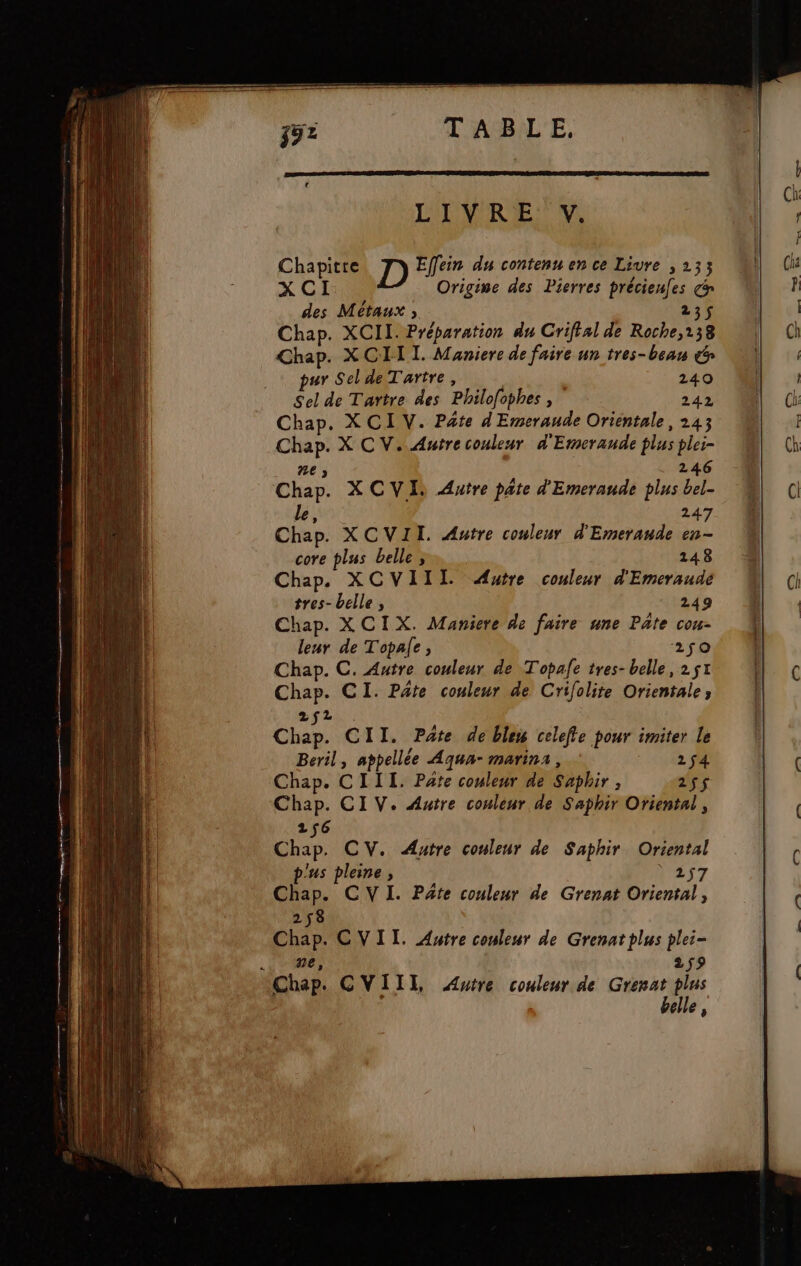 392 TABLE.
LIVRE V.
Chapitre DEſſein du contenu en ce Livre , 233
XCI Origine des Pierres précieuſes &
des Métaux , 235
Chap. XCII. Préparation du Criſtal de Roche, 238
Chap. XCIII. Maniere de faire un tres-beau &
pur Sel de Tartre , 240
Sel de Tartre des Philoſophes , 242
Chap. XCIV. Páte d'Emeraude Oriéntale , 243
Chap. XCV. Autre couleur d'Emeraude plus plei-
ne , 246
Chap. XCVI. Autre páte d'Emeraude plus bel-
le , 247
Chap. XCVII. Autre couleur d'Emeraude en-
core plus belle , 248
Chap. XCVIII. Autre couleur d'Emeraude
tres-belle , 249
Chap. XCIX. Maniere de faire une Páte cou-
leur de Topaſe , 250
Chap. C. Autre couleur de Topaſe tres-belle , 251
Chap. CI. Páte couleur de Criſolite Orientale ,
252
Chap. CII. Páte de bleu celeſte pour imiter le
Beril , appellée Aqua-marina , 254
Chap. CIII. Páte couleur de Saphir , 255
Chap. CIV. Autre couleur de Saphir Oriental ,
256
Chap. CV. Autre couleur de Saphir Oriental
plus pleine , 257
Chap. CVI. Páte couleur de Grenat Oriental ,
258
Chap. CVII. Autre couleur de Grenat plus plei-
ne , 259
Chap. CVIII, Autre couleur de Grenat plus
belle ,